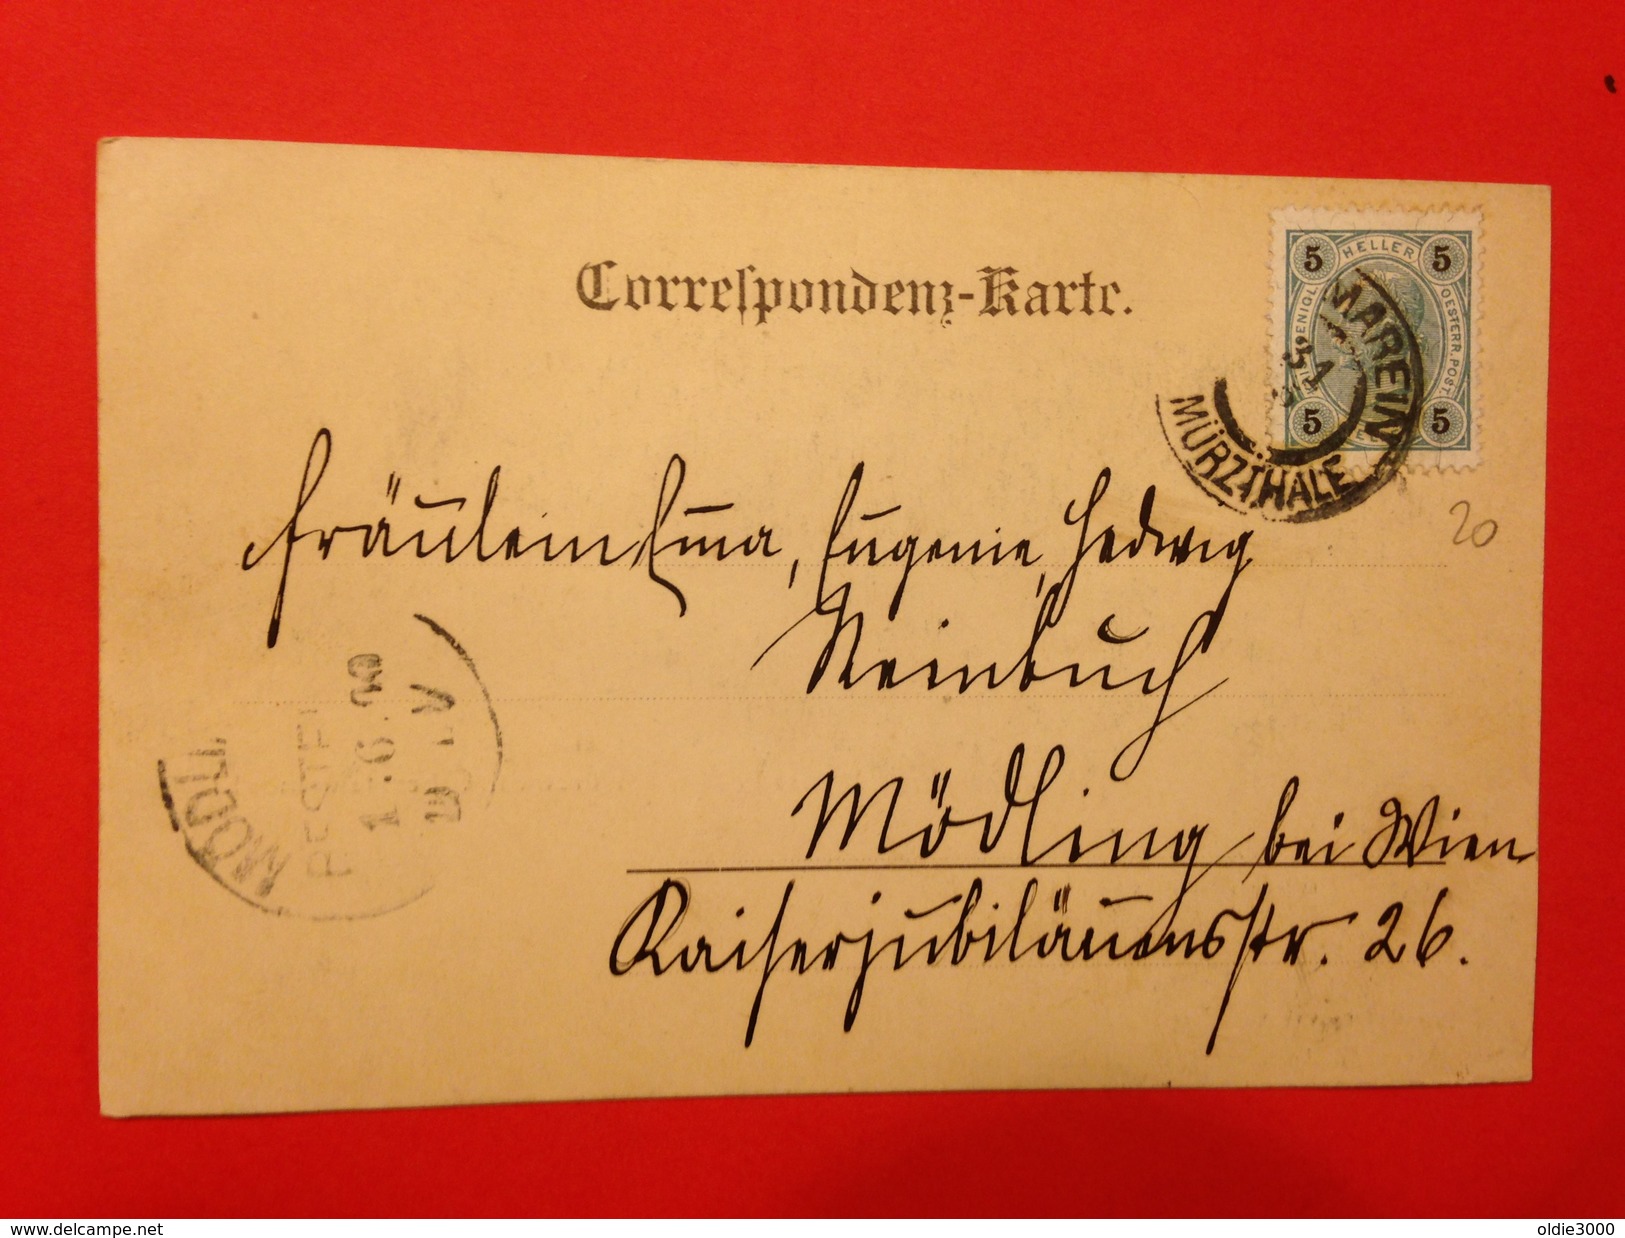 Correspondenz-Karte.
5 HELLER 5
OESTERR. POST
5 5
MAREIN
MÜRZTHALE
20
Fräulein Emma, Eugenie, Hedwig
Reinbuch
Mödling bei Wien
Kaiserjubiläumsstr. 26.
MÖDL
BESTE
www.delcampe.net
oldie3000